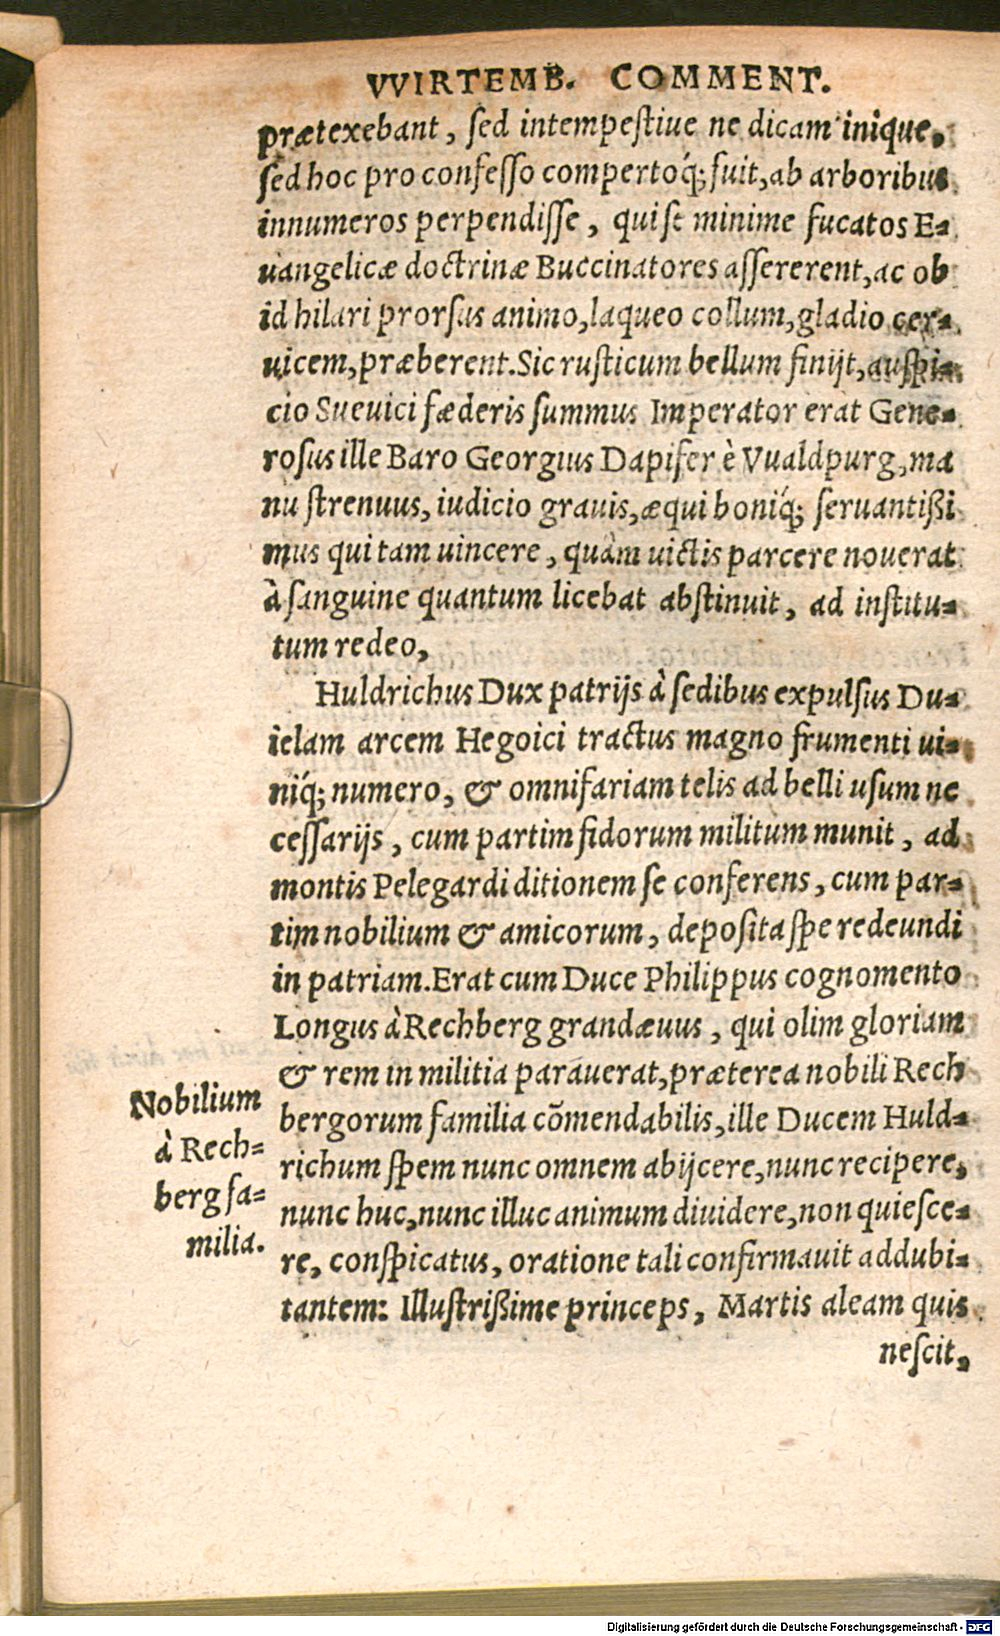 VVIRTEMB. COMMENT.
prætexebant, sed intempestiue ne dicam inique,
sed hoc pro confesso compertoq́; fuit, ab arboribus
innumeros perpendisse, qui se minime fucatos E-
uangelicæ doctrinæ Buccinatores assererent, ac ob
id hilari prorsus animo, laqueo collum, gladio cer-
uicem, præberent. Sic rusticum bellum finijt, auspi-
cio Sueuici fæderis summus Imperator erat Gene-
rosus ille Baro Georgius Dapifer è Vualdpurg, ma
nu strenuus, iudicio grauis, æqui boniq́; seruantißi
mus qui tam uincere, quàm uictis parcere nouerat
à sanguine quantum licebat abstinuit, ad institu-
tum redeo,
Huldrichus Dux patrijs à sedibus expulsus Du-
ielam arcem Hegoici tractus magno frumenti ui-
niq́; numero, & omnifariam telis ad belli usum ne
cessarijs, cum partim fidorum militum munit, ad
montis Pelegardi ditionem se conferens, cum par-
tim nobilium & amicorum, deposita spe redeundi
in patriam. Erat cum Duce Philippus cognomento
Longus à Rechberg grandæuus, qui olim gloriam
& rem in militia parauerat, præterea nobili Rech
bergorum familia cõmendabilis, ille Ducem Huld-
richum spem nunc omnem abijcere, nunc recipere,
nunc huc, nunc illuc animum diuidere, non quiesce-
re, conspicatus, oratione tali confirmauit addubi-
tantem: Illustrißime princeps, Martis aleam quis
nescit,
Nobilium
à Rech-
berg fa-
milia.
Digitalisierung gefördert durch die Deutsche Forschungsgemeinschaft - DFG